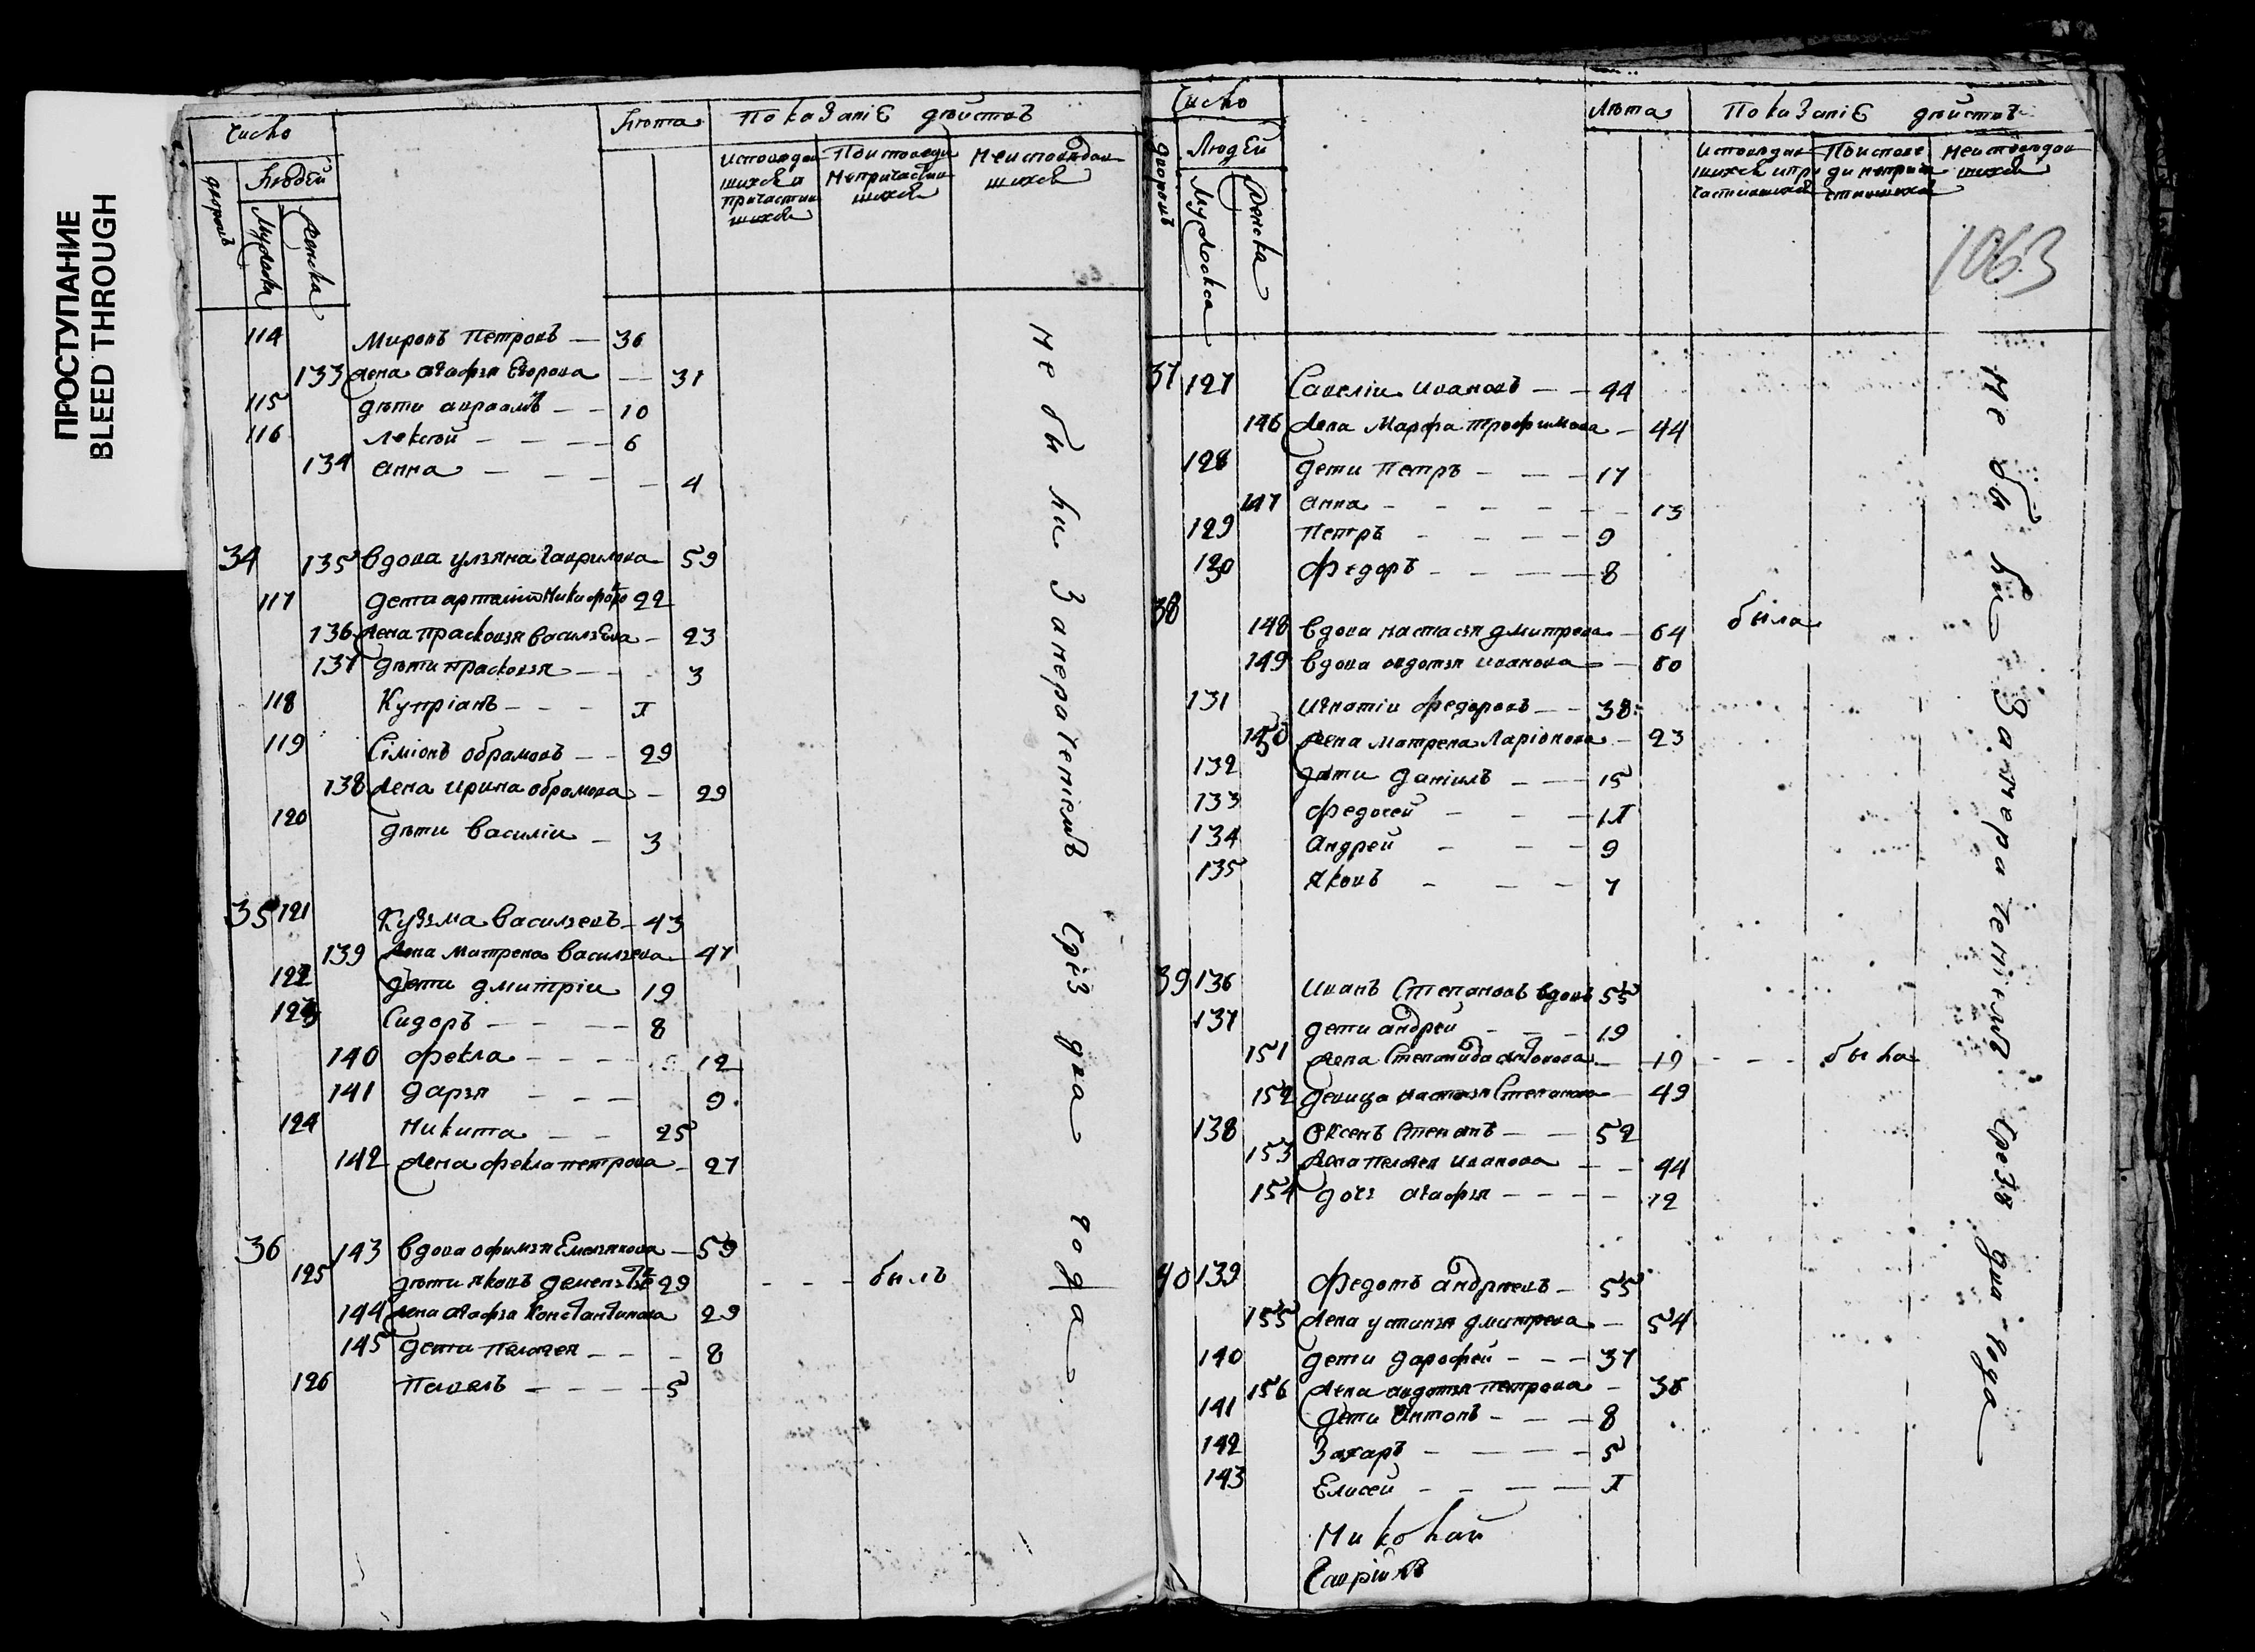 ПРОСТУПАНИЕ
BLEED THROUGH
Число
Лѣта
Показаніе дѣйствъ
дворовъ
Людей
Мужеска
Женска
исповѣдавшихся и причастившихся
По исповеди непричастившихся
Неисповѣдавшихся
114 Миронъ Петровъ — 36
133 жена агафья Егорова — 31
115 дѣти авраамъ — — 10
116 Лексѣй — — — 6
134 анна — — — — 4
34 135 вдова ульяна Гаврилова — 59
117 дети артамон Никифоро 22
136 жена прасковья васильева — 23
137 дѣти прасковья — — 3
118 Купріанъ — — — 1
119 Сіміонъ обрамовъ — — 29
138 жена ирина обрамова — 29
120 дѣти василіи — 3
35 121 Кузьма васильевъ — 43
139 жена матрена васильева — 47
122 дети дмитріи 19
123 Сидоръ — — — 8
140 фекла — — — 12
141 дарья — — — 9
124 никита — — 25
142 жена фекла петрова — 27
36 143 вдова офимья Емельянова — 59
125 дѣти яковъ дементьевъ 29 — — — былъ
144 жена агафья Константинова 29
145 дети пелагея — — — 8
126 Павелъ — — — — 5
не были Занерачениемъ Чрѣз два года
Число
Лѣта
Показаніе дѣйствъ
дворовъ
Людей
Мужеска
Женска
исповѣдавшихся и причастившихся
По исповеди непричастившихся
Неисповѣдавшихся
1063
37 127 Савеліи ивановъ — — 44
146 жена Марфа трофимова — 44
128 дети петръ — — — 17
147 анна — — — — — 13
129 Петръ — — — — 9
130 федоръ — — — — 8
38 148 вдова настасья дмитрева — 64 была
149 вдова авдотья иванова — — 60
131 игнатіи федоровъ — — 38
150 жена матрена Ларіонова — 23
132 дѣти даніилъ — — — 15
133 федосеи — — — 11
134 андреи — — — 9
135 яковъ — — — 7
39 136 иванъ Степановъ вдовъ 55
137 дети андреи — — — 19
151 жена Степанида антонова — 19 — — — была
152 девица настасья Степанова — 49
138 Оксенъ Степанъ — — 52
153 жена пелагея иванова — — 44
154 дочь агафья — — — — 12
40 139 федотъ андреевъ — 55
155 жена устинья дмитрева — 54
140 дети дарофеи — — — 37
156 жена авдотья петрова — 38
141 дети антонъ — — — 8
142 Захаръ — — — — 5
143 Елисеи — — — — 1
Николай
Гаврилъ
не были Занерачениемъ Чрезъ два года